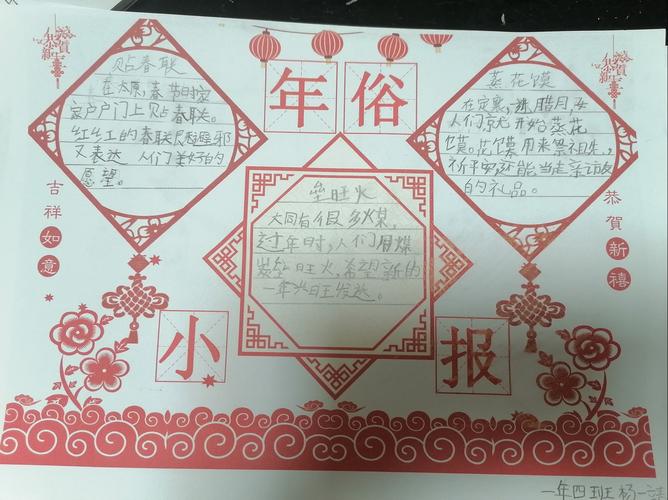 恭賀新禧
年俗
恭賀新禧
贴春联
在太原,春节时家
家户户门上贴春联。
红红的春联既避邪
又表达人们美好的
愿望。
蒸花馍
在定襄,腊月
人们就开始蒸花
馍。花馍用来祭祖先,
祈平安还能当走亲访友
的礼品。
垒旺火
大同有很多煤,
过年时,人们用煤
炭垒旺火,希望新的
一年兴旺发达。
吉祥如意
恭賀新禧
小报
一年四班杨一